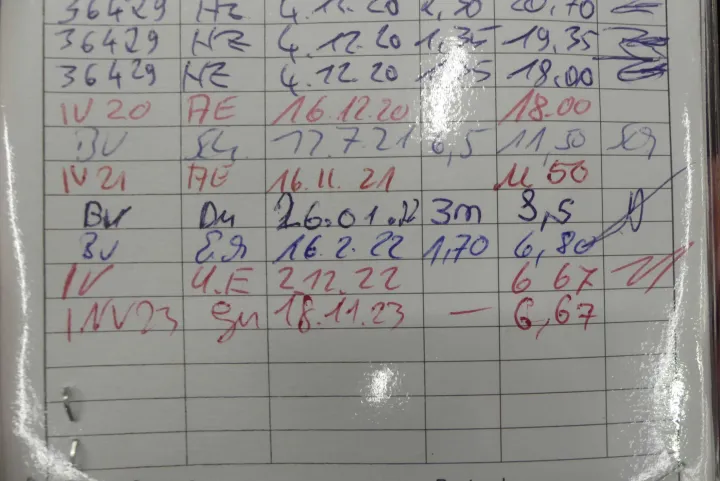 36429 HZ 4.12.20 20,70
36429 HZ 4.12.20 1,35 19,35
36429 HZ 4.12.20 18,00
IV 20 AE 16.12.20 18.00
BV 12.7.21 6,5 11,50
IV 21 AE 16.11.21 11 50
BV Du 26.01.22 3m 8,5
BV 16.2.22 1,70 6,80
IV U.E 2.12.22 6 67
INV23 18.11.23 — 6,67